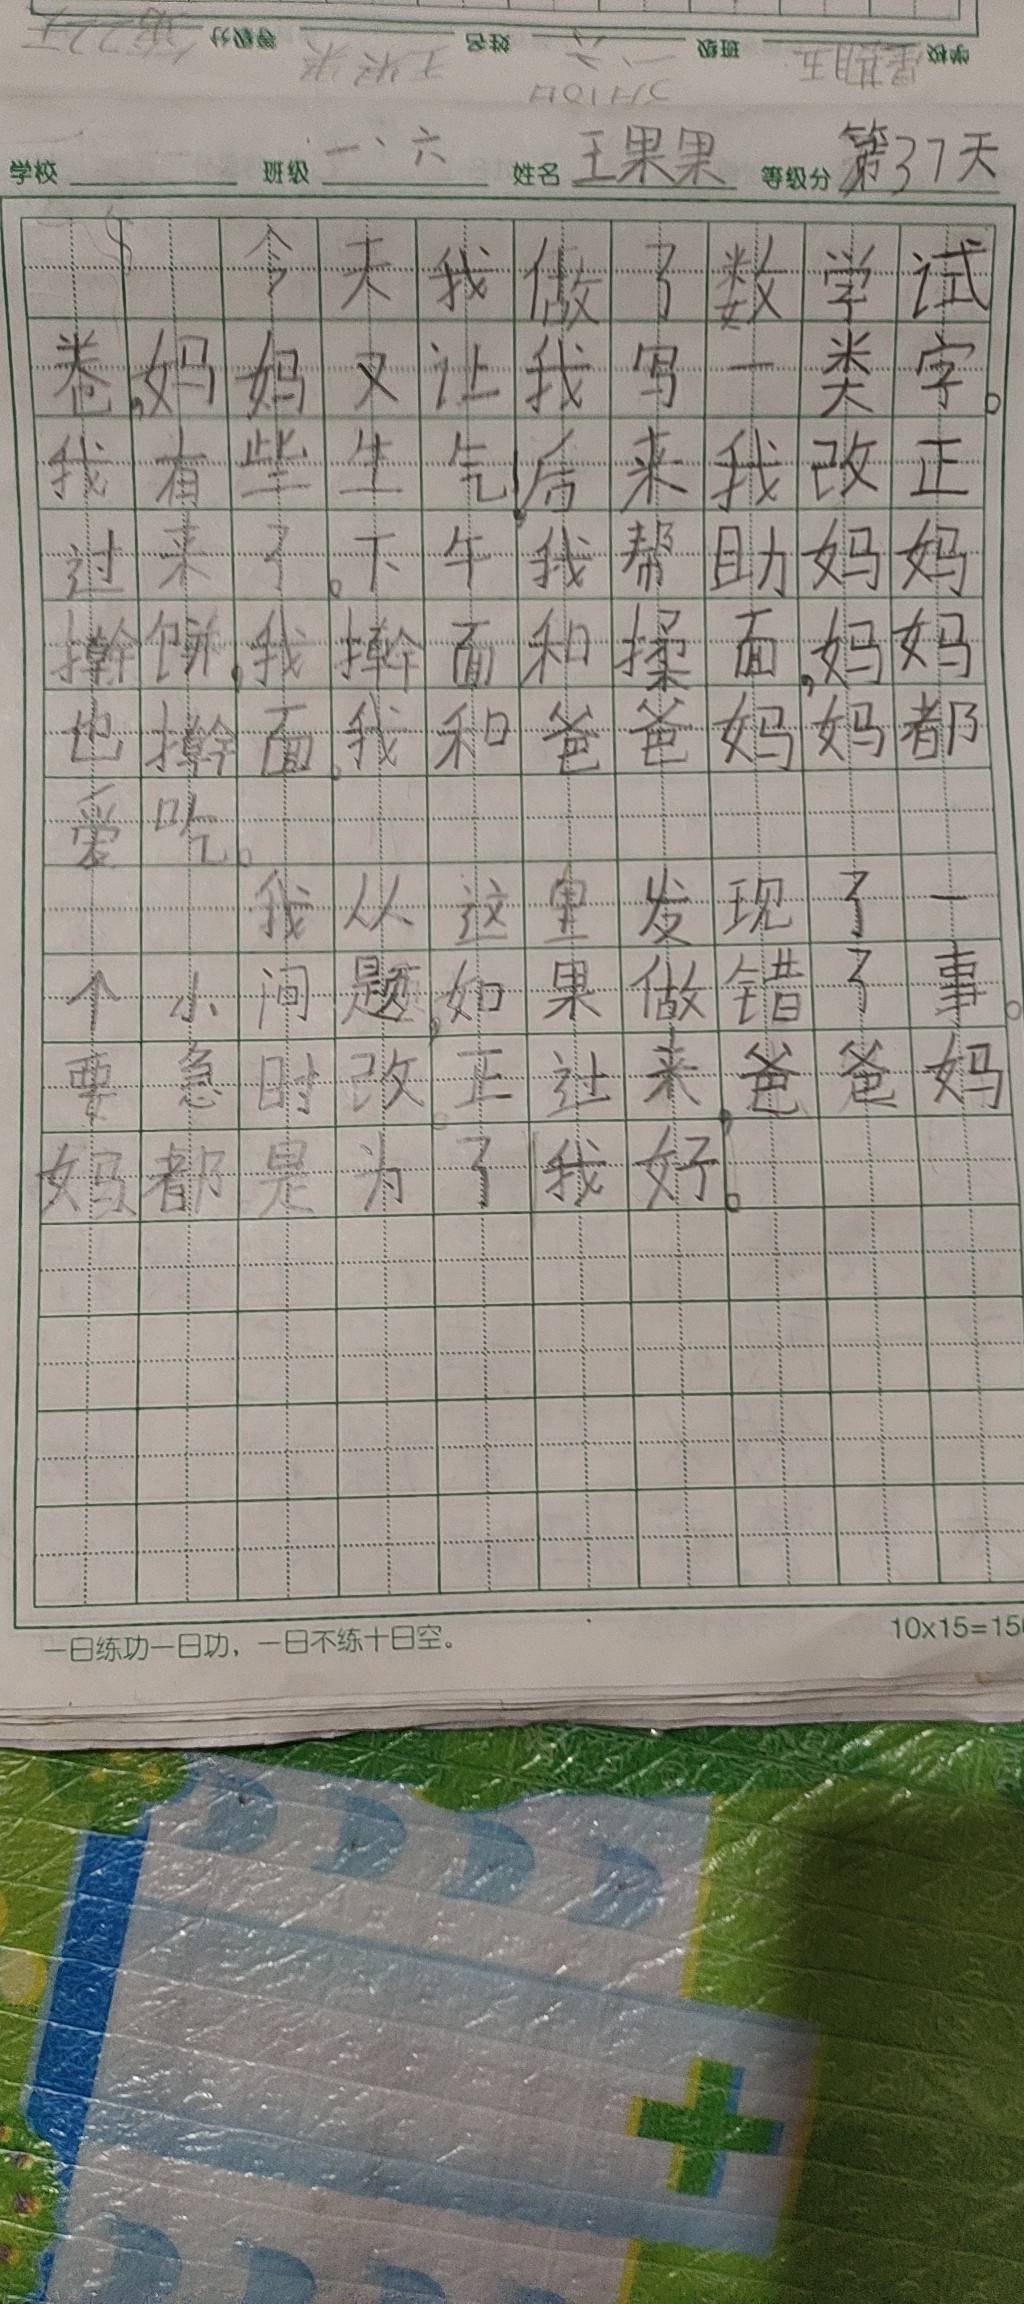 学校 星期五 班级 一、六 姓名 王果果 等级分 第22天
5月10日
学校 班级 一、六 姓名 王果果 等级分 第37天
今天我做了数学试
卷,妈妈又让我写一类字。
我有些生气,后来我改正
过来了。下午我帮助妈妈
擀饼,我擀面和揉面,妈妈
也擀面。我和爸爸妈妈都
爱吃。
我从这里发现了一
个小问题,如果做错了事。
要急时改正过来,爸爸妈
妈都是为了我好。
一日练功一日功，一日不练十日空。
10x15=15